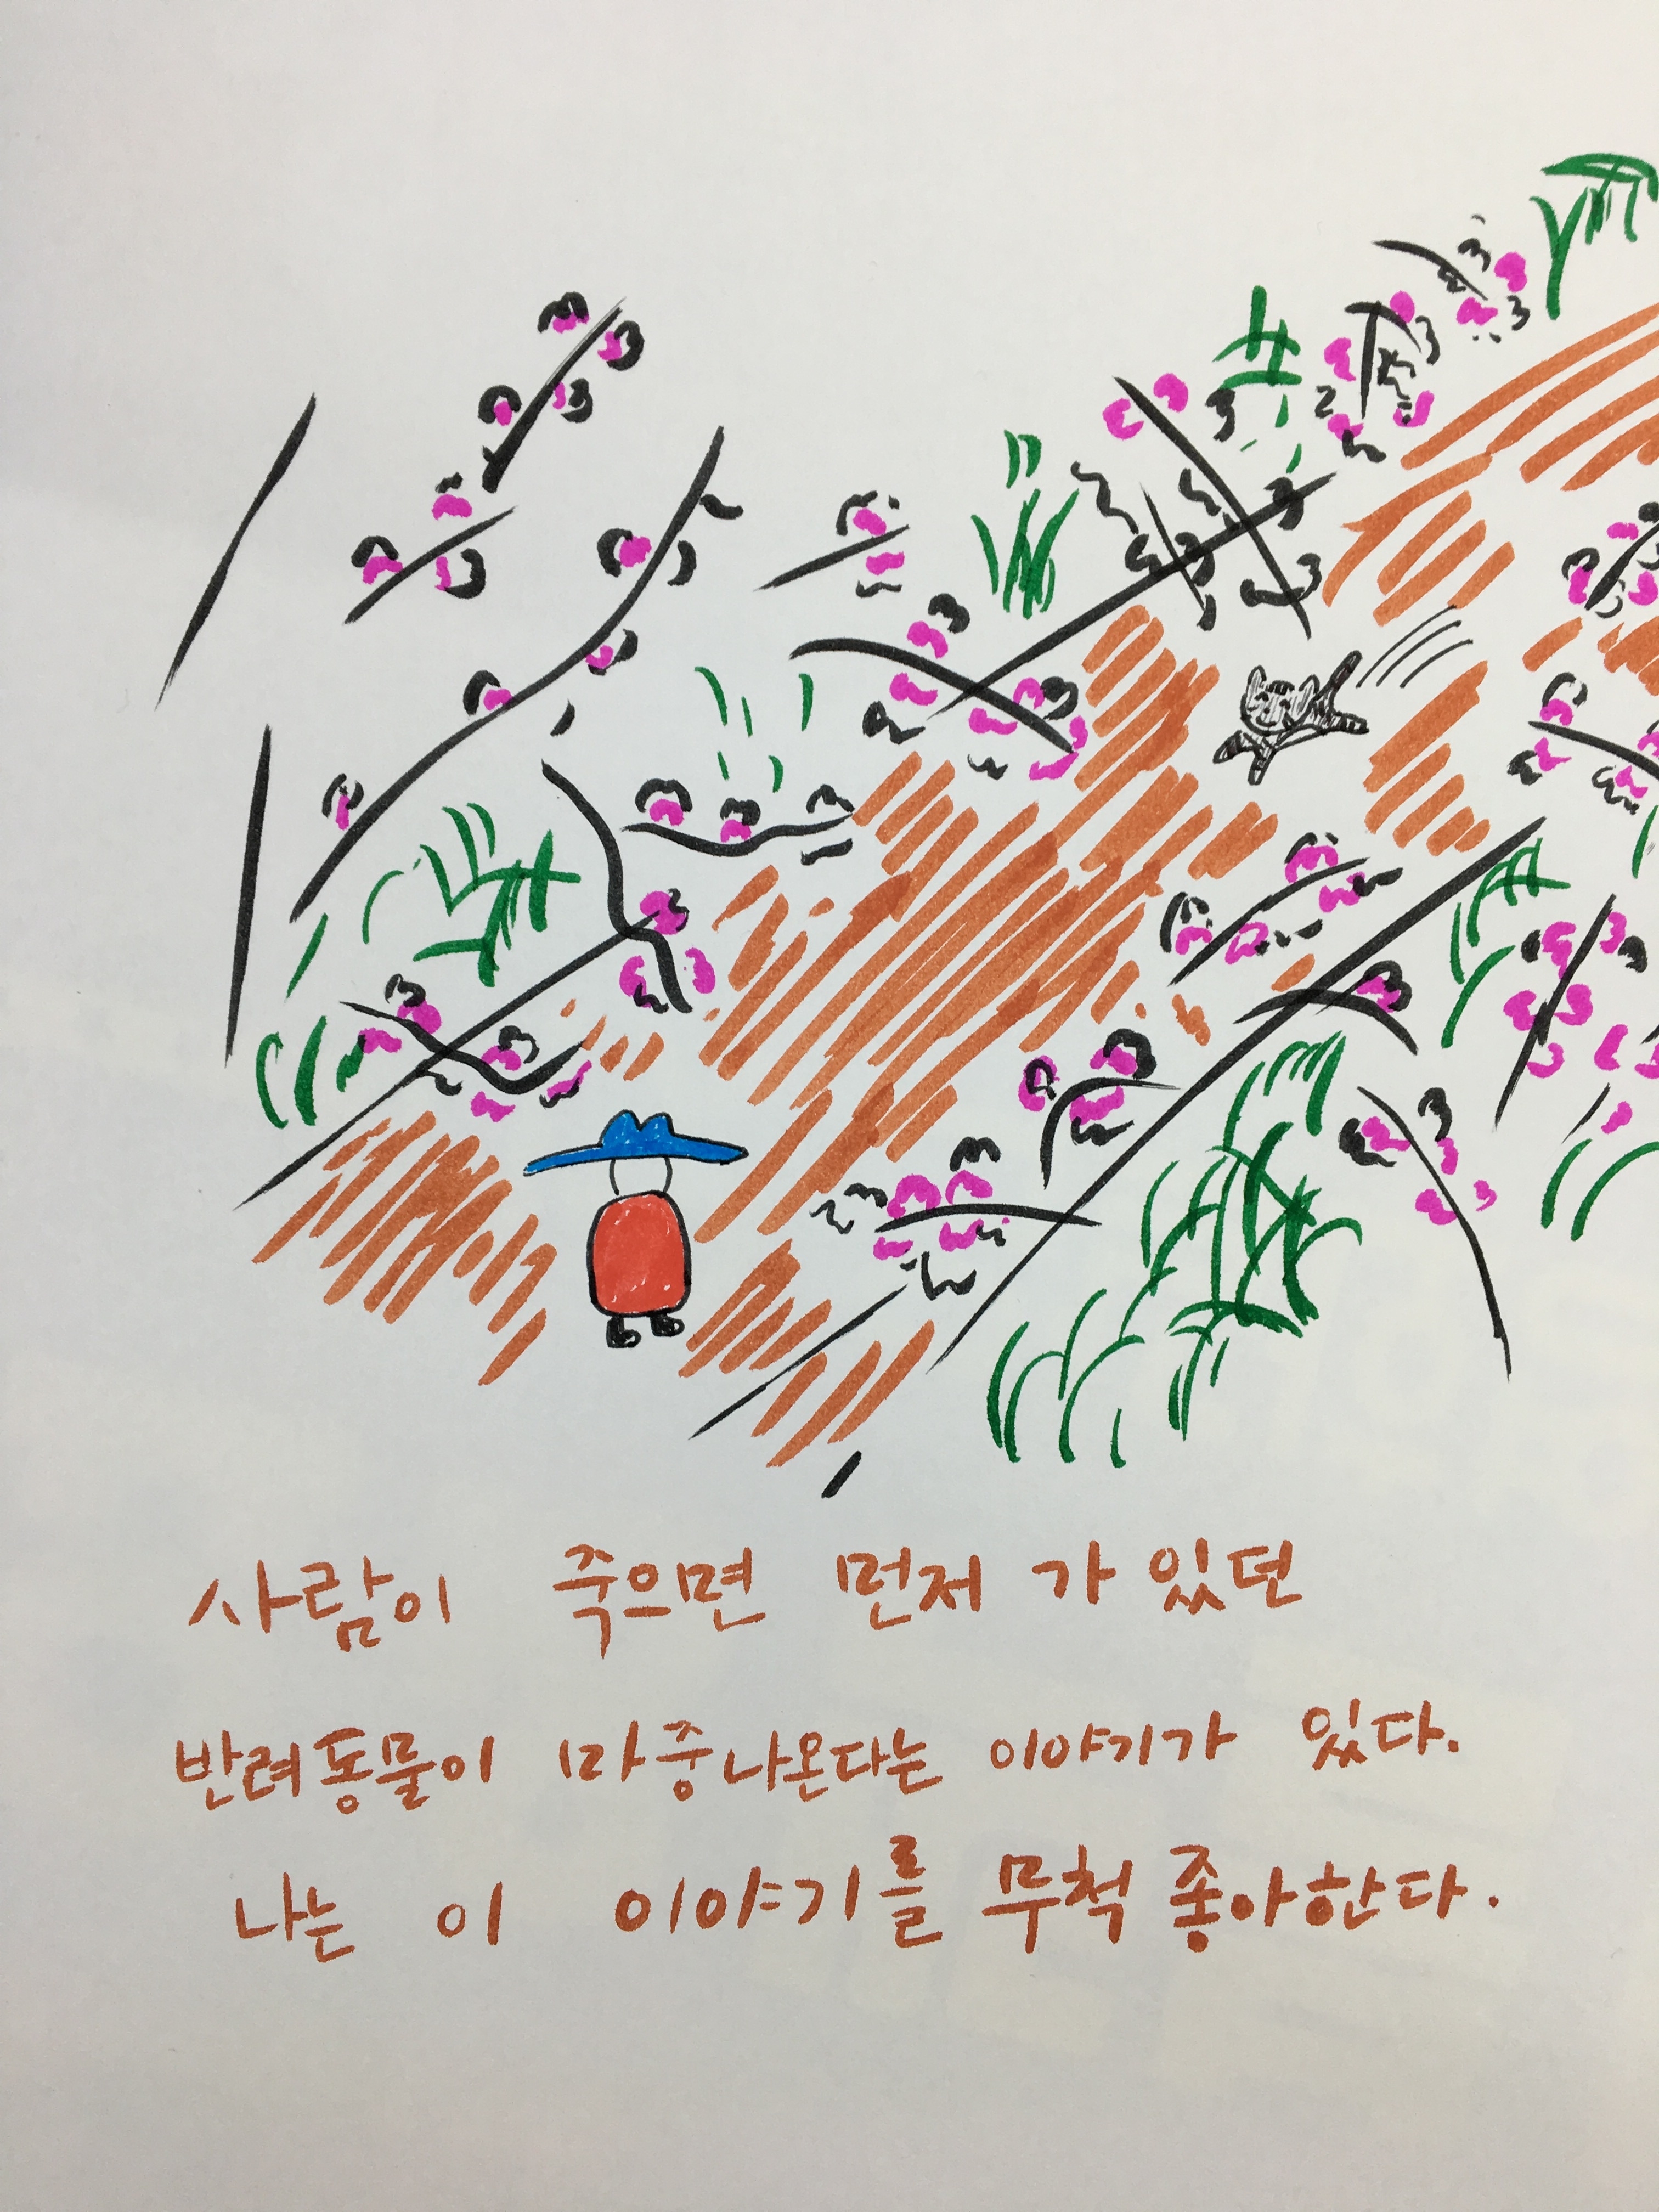 사람이 죽으면 먼저 가 있던
반려동물이 마중나온다는 이야기가 있다.
나는 이 이야기를 무척 좋아한다.